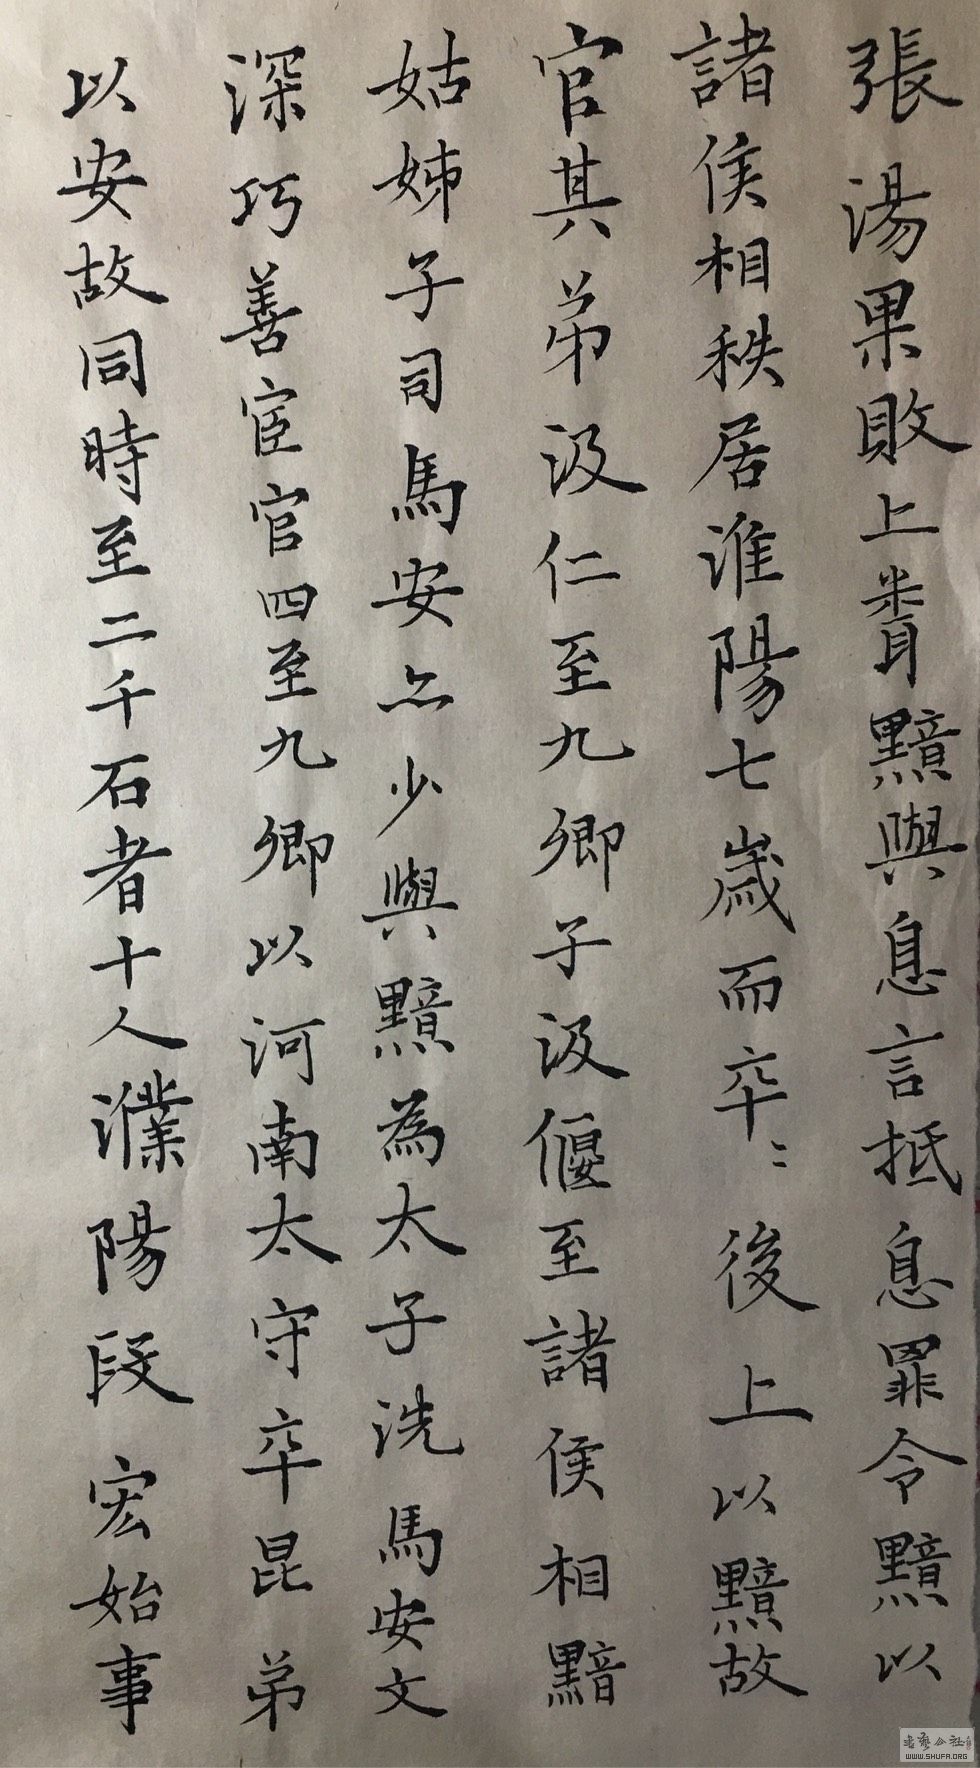 張湯果敗上聞黯與息言抵息罪令黯以
諸侯相秩居淮陽七歲而卒〻後上以黯故
官其弟汲仁至九卿子汲偃至諸侯相黯
姑姊子司馬安亦少與黯為太子洗馬安文
深巧善宦官四至九卿以河南太守卒昆弟
以安故同時至二千石者十人濮陽段宏始事
書藝公社
WWW.SHUFA.ORG